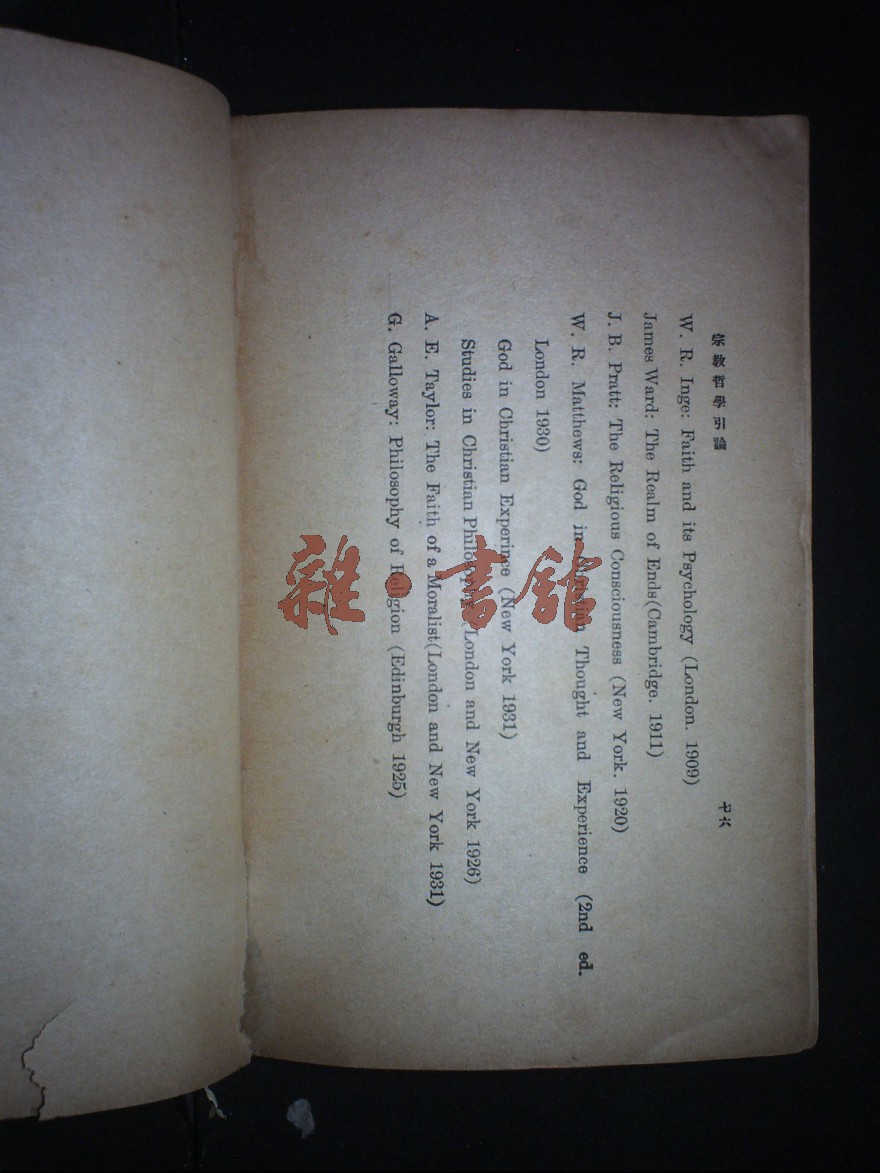 宗教哲學引論
七六
W. R. Inge: Faith and its Psychology (London. 1909)
James Ward: The Realm of Ends(Cambridge. 1911)
J. B. Pratt: The Religious Consciousness (New York. 1920)
W. R. Matthews: God in Christian Thought and Experience (2nd ed.
London 1930)
God in Christian Experince (New York 1931)
Studies in Christian Philosophy (London and New York 1926)
A. E. Taylor: The Faith of a Moralist(London and New York 1931)
G. Galloway: Philosophy of Religion (Edinburgh 1925)
雜·書館